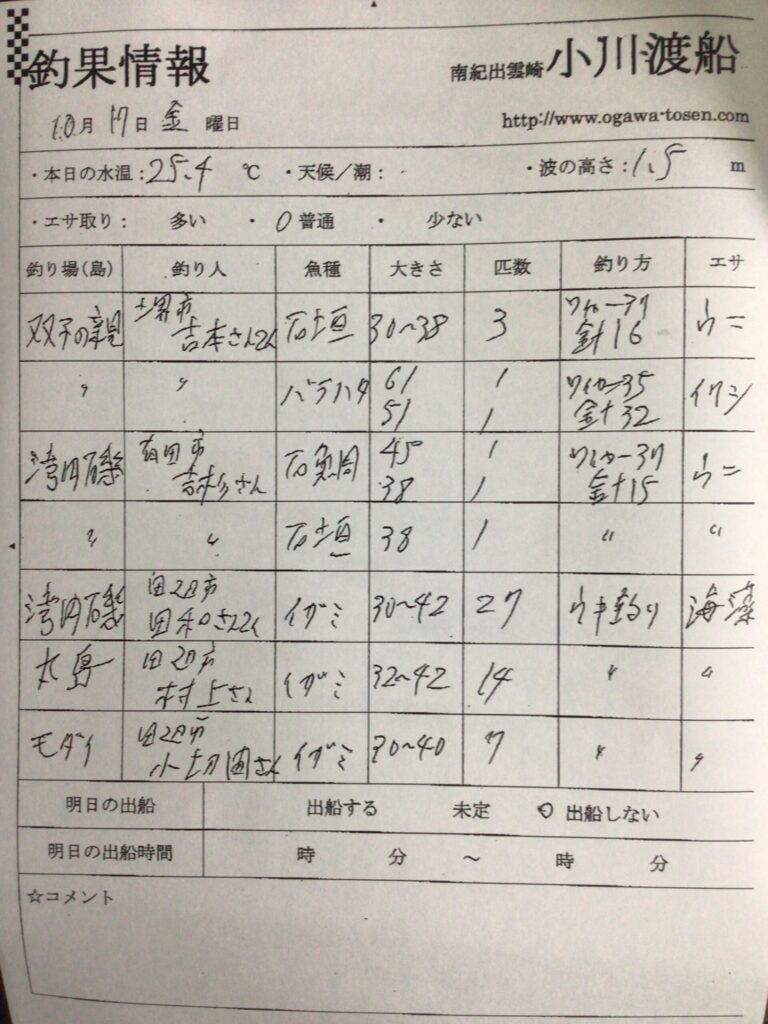 釣果情報
南紀出雲崎 小川渡船
10月 17日 金 曜日
http://www.ogawa-tosen.com
・本日の水温：25.4 ℃ ・天候／潮： ・波の高さ：1.5 m
・エサ取り： 多い ・ 0 普通 ・ 少ない
釣り場(島) 釣り人 魚種 大きさ 匹数 釣り方 エサ
双子の親 堺市 吉本さん2人 石垣 30〜38 3 ワイヤー37 針16 ウニ
〃 〃 バラハタ 61 1 ワイヤー35 イワシ
51 1 針32
湾内磯 有田市 さん 石鯛 45 1 ワイヤー37 ウニ
38 1 針15
〃 〃 石垣 38 1 〃 〃
湾内磯 田辺市 さん2人 イガミ 30〜42 27 ウキ釣り 海藻
丸島 田辺市 村上さん イガミ 32〜42 14 〃 〃
モダイ 田辺市 さん イガミ 30〜40 7 〃 〃
明日の出船 出船する 未定 0 出船しない
明日の出船時間 時 分 〜 時 分
☆コメント